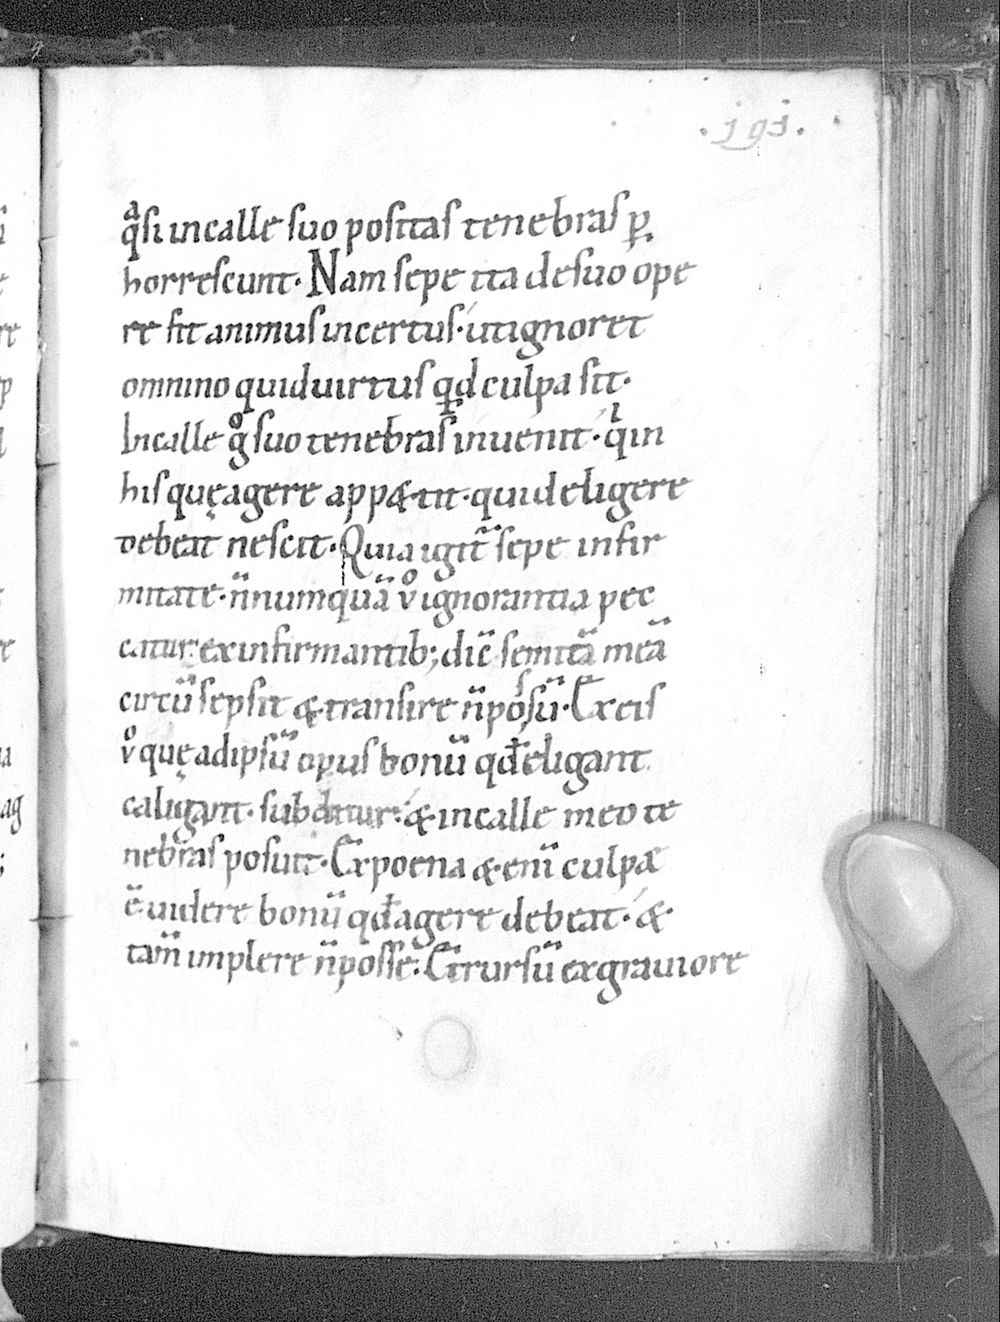 .191.
qͣsi in calle suo positas tenebras ꝑ
horrescunt. Nam sepe ita de suo ope
re fit animus incertus. ut ignoret
omnino quid uirtus qd culpa sit.
In calle gͦ suo tenebras inuenit. qͥ in
his quę agere appetit. quid eligere
debeat nescit. Quia igit̄ sepe infir
mitate. n̄numquā vͦ ignorantia pec
catur: ex infirmantib; dic̄ semitā meā
circū sepsit & transire n̄ possū. Ex eis
vͦ quę ad ipsū opus bonū qd̄ eligant
caligant. subditur: & in calle meo te
nebras posuit. Ex poena & enī culpæ
ē uidere bonū qd̄ agere debeat. &
tam̄ implere n̄ posse: Et rursū ex grauiore